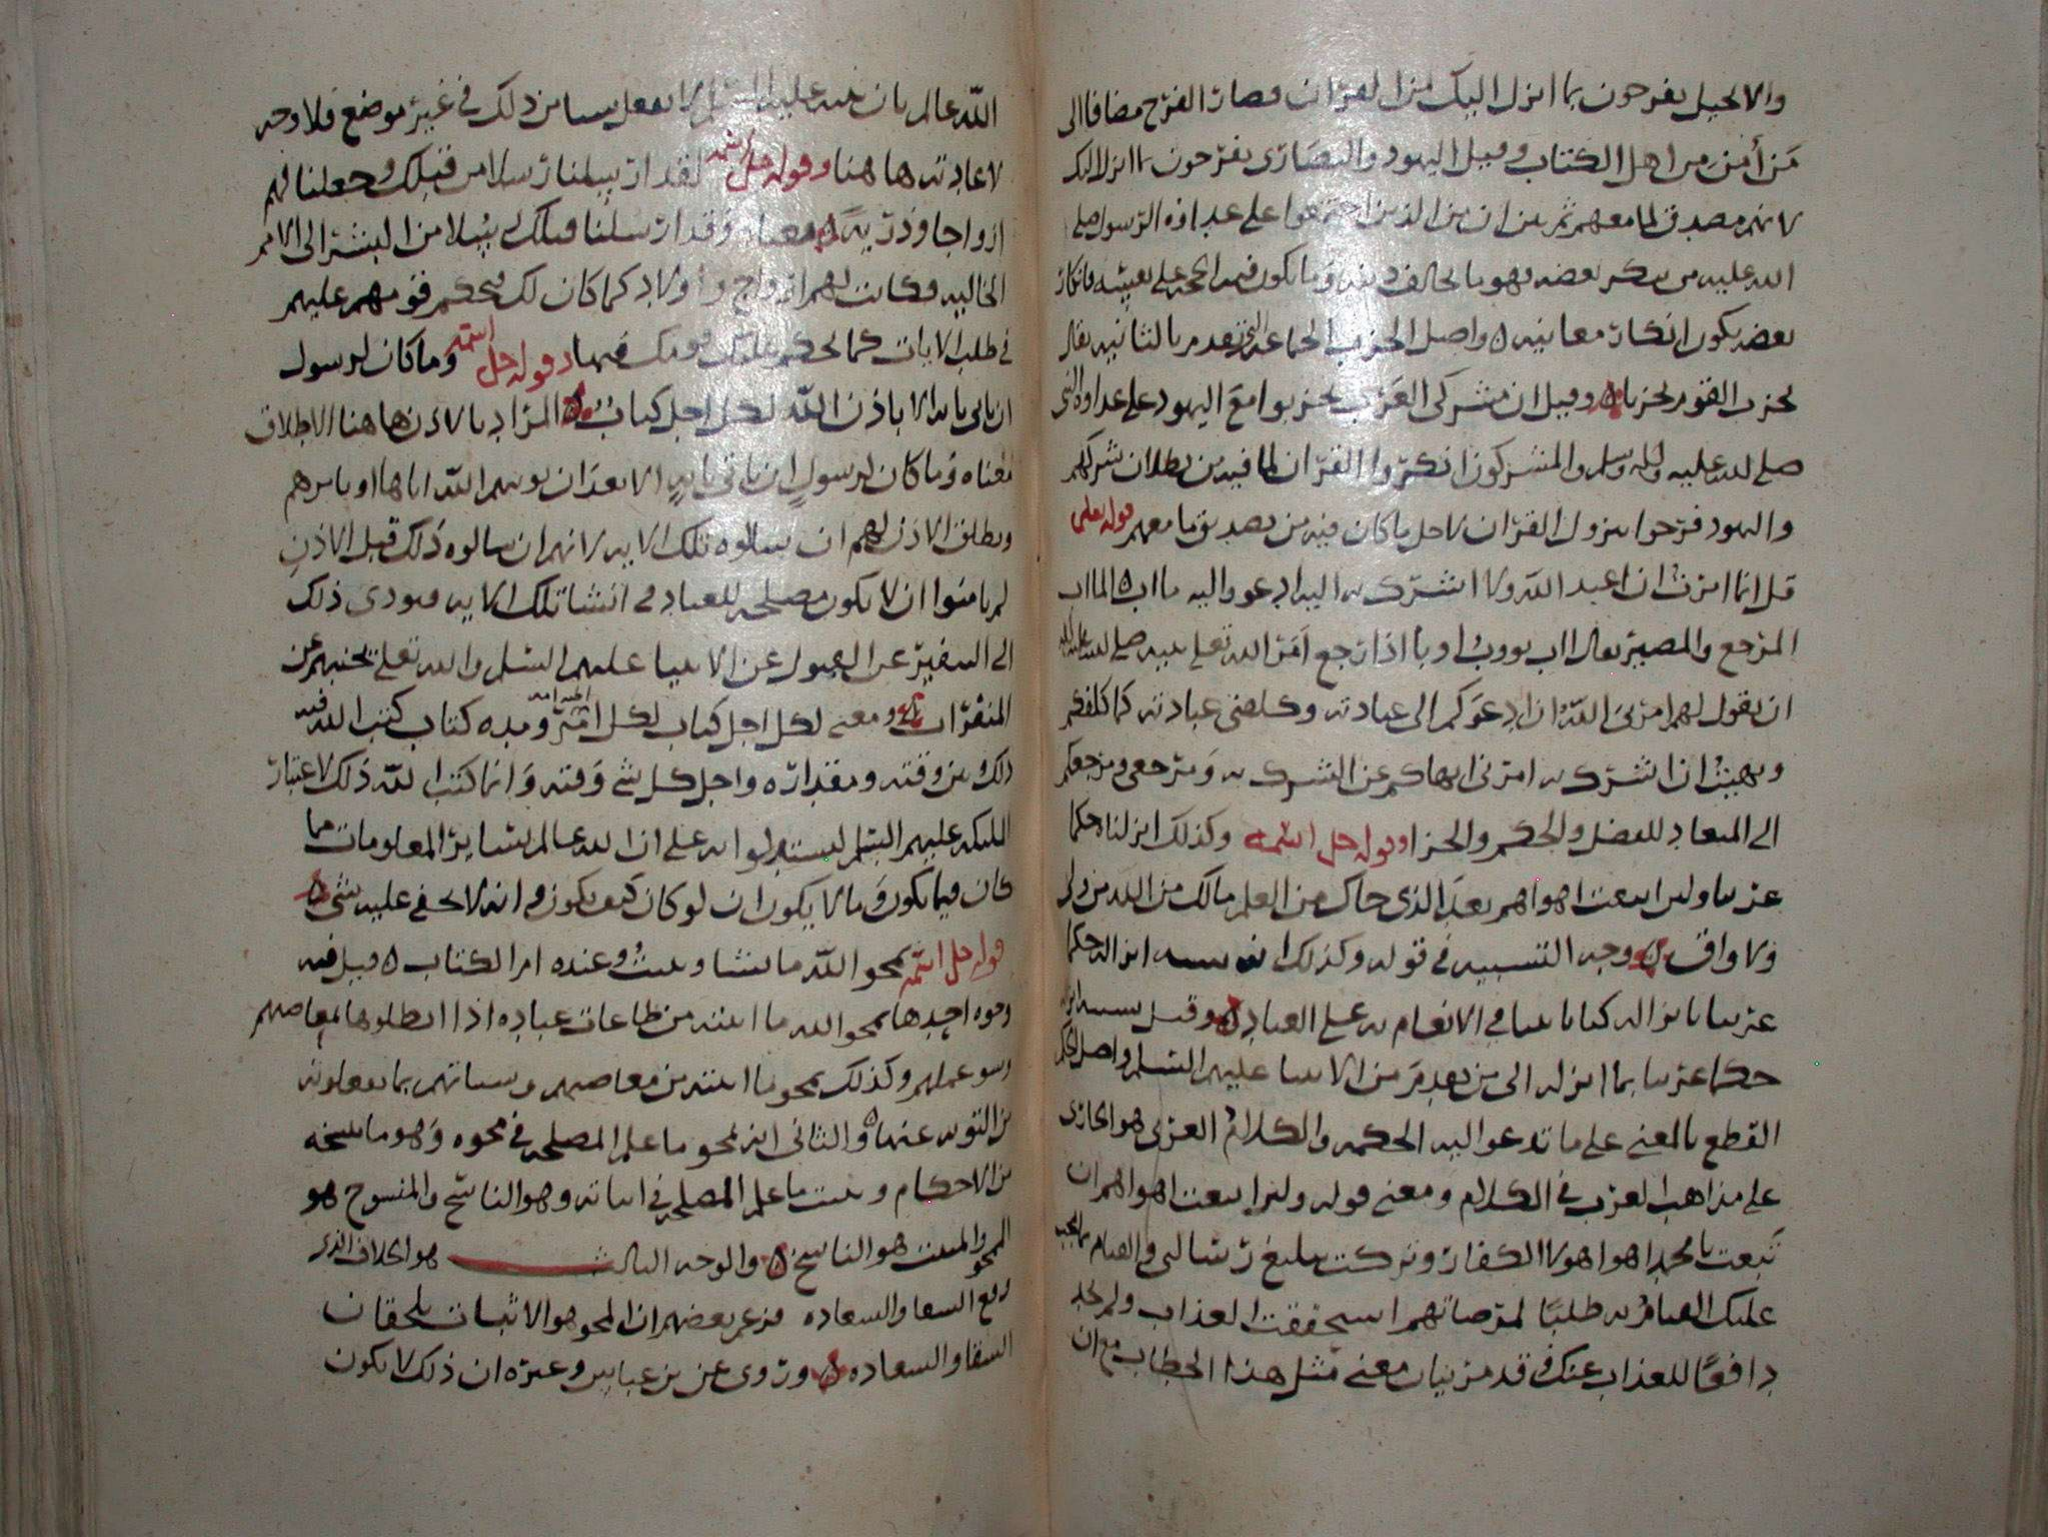 والانجيل يفرحون بما انزل اليك من القران فصار الفرح مضافا الى
من أمن من اهل الكتاب وقيل اليهود والنصارى يفرحون بما انزل اليك
لانه مصدق لما معهم ثم بين ان من الذين اجتمعوا على عداوة الرسول صلى
الله عليه من ينكر بعضه فهو ما يخالف دينه وما يكون فيه الحجة على نفسه فانكار
بعضه يكون انكار معانيه ٥ واصل الحزب الجماعة التي تقدم بالنائبة يقال
تحزب القوم تحزبا ٥ وقيل ان مشركى العرب تحزبوا مع اليهود على عداوة النبي
صلى الله عليه وآله وسلم والمشركون انكروا القران لما فيه من بطلان شركهم
واليهود فرحوا بنزول القران لاجل ما كان فيه من تصديق ما معهم قوله تعلى
قل انما امرت ان اعبد الله ولا اشرك به اليه ادعوا واليه مااب ٥ المااب
المرجع والمصير يقال اب يووب اوبا اذا رجع امر الله تعلى نبيه صلى الله عليه وآله
ان يقول لهم امرنى الله ان ادعوكم الى عبادته وكلفنى عبادته كما كلفكم
ونهيت ان اشرك به امرنى انهاكم عن الشرك به ومرجعى ومرجعكم
الى المعاد للفصل والحكم والجزا وقوله جل اسمه وكذلك انزلناه حكما
عربيا ولين اتبعت اهواهم بعد الذى جاك من العلم مالك من الله من ولى
ولا واق ٥ وجه التشبيه فى قوله وكذلك انه انزاله حكما
عربيا بانزاله كتابا فى الانعام به على العباد ٥ وقيل
حكما عربيا بما انزله الى من تقدم من الانبيا عليهم السلم واصل الحكم
القطع بالمعنى على ما تدعوا اليه الحكمه والكلام العربى هو الجارى
على مذاهب العرب فى الكلام ومعنى قوله ولين اتبعت اهواهم ان
تبعت يا محمد اهوا هولا الكفار وتركت تبليغ رسالتى والقيام بما يجب
عليك القيام به طلبا لمرضاتهم استحققت العذاب ولم تجد
دافعا للعذاب عنك وقد مر بيان معنى مثل هذا الخطاب مع ان
الله عالم بان نبيه عليه السلم لا يفعل شيا من ذلك فى غير موضع فلا وجه
لاعادته هاهنا وقوله جل اسمه لقد ارسلنا رسلا من قبلك وجعلنا لهم
ازواجا وذرية ٥ معناه وقد ارسلنا قبلك رسلا من البشر الى الامم
الخاليه فكانت لهم ازواج واولاد كما كان لك فتحكم قومهم عليهم
فى طلب الايات كما تحكم عليك قومك فيها وقوله جل اسمه وما كان لرسول
ان ياتى بايه الا باذن الله لكل اجل كتاب ٥ المراد بالاذن هاهنا الاطلاق
معناه وما كان لرسول ان ياتى بايه الا بعد ان يوتيهم الله اياها او يامرهم
ويطلق الاذن لهم ان يسالوه تلك الايه لانهم ان سالوه ذلك قبل الاذن
لم يامنوا ان لا يكون مصلحه للعباد فى انشا تلك الايه فيودى ذلك
الى التنفير عن القبول عن الانبيا عليهم السلم والله تعلى يجنبهم عن
المنفرات ٥ ومعنى لكل اجل كتاب لكل امر ومده كتاب كتب الله فيه
ذلك وبين وقته ومقداره واجل كل شى وقته وانما كتب الله ذلك لاعتبار
الملئكه عليهم السلم ليستدلوا به على ان الله عالم بساير المعلومات ما
كان فيما يكون وما لا يكون ان لو كان كيف يكون وانه لا يخفى عليه شى ٥
قوله جل اسمه يمحو الله ما يشا ويثبت وعنده ام الكتاب ٥ قيل فيه
وجوه احدها يمحو الله ما اثبته من طاعات عباده اذا ابطلوها بمعاصيهم
وسو عملهم وكذلك يمحو ما اثبته من معاصيهم وسياتهم بما يفعلونه
من التوبه عنها ٥ والثانى انه يمحو ما علم المصلحه فى محوه وهو ما نسخه
من الاحكام ويثبت ما علم المصلحه فى اثباته وهو الناسخ والمنسوخ هو
المحو والمثبت هو الناسخ ٥ والوجه الثالث هو الخلاف الذى
وقع الشقا والسعاده فزعم بعضهم ان المحو هو الاثبات يلحقان
الشقا والسعاده ٥ وروى عن بن عباس وغيره ان ذلك لا يكون